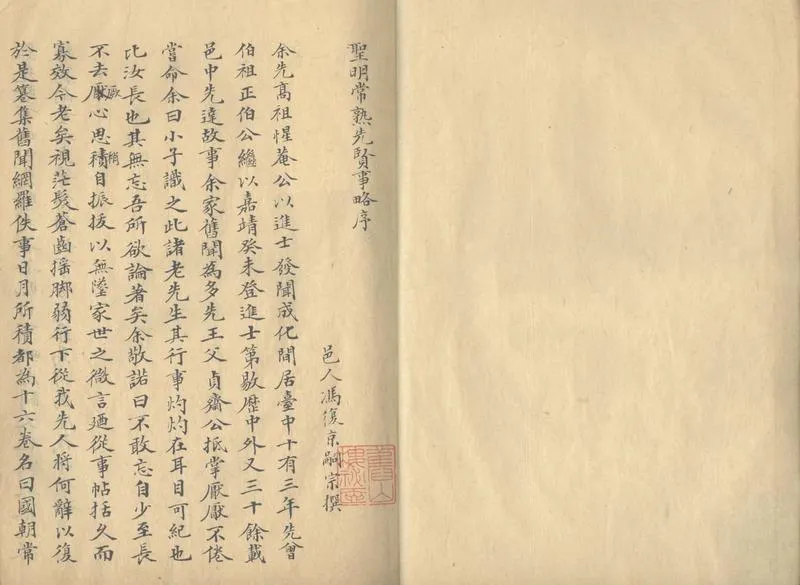 聖明常熟先賢事略序
邑人馮復京嗣宗撰
余先高祖惺菴公以進士發聞成化間居臺中十有三年先曾
伯祖正伯公繼以嘉靖癸未登進士第敭歷中外又三十餘載
邑中先達故事余家舊聞為多先王父貞齋公抵掌厭厭不倦
嘗命余曰小子識之此諸老先生其行事灼灼在耳目可紀也
比汝長也其無忘吾所欲論著矣余敬諾曰不敢忘自少至長
不去厥心思積自振拔以無墜家世之微言廼從事帖括久而
寡效今老矣視茫髮蒼齒搖脚弱行下從我先人將何辭以復
於是纂集舊聞網羅佚事日月所積都為十六卷名曰國朝常